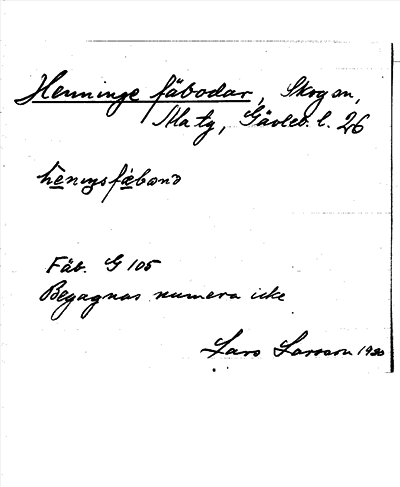 Henninge fäbodar, Skogen,
Gävleb. l. 26
Fäb. G 105
Begagnas numera icke
Lars Larsson 1930